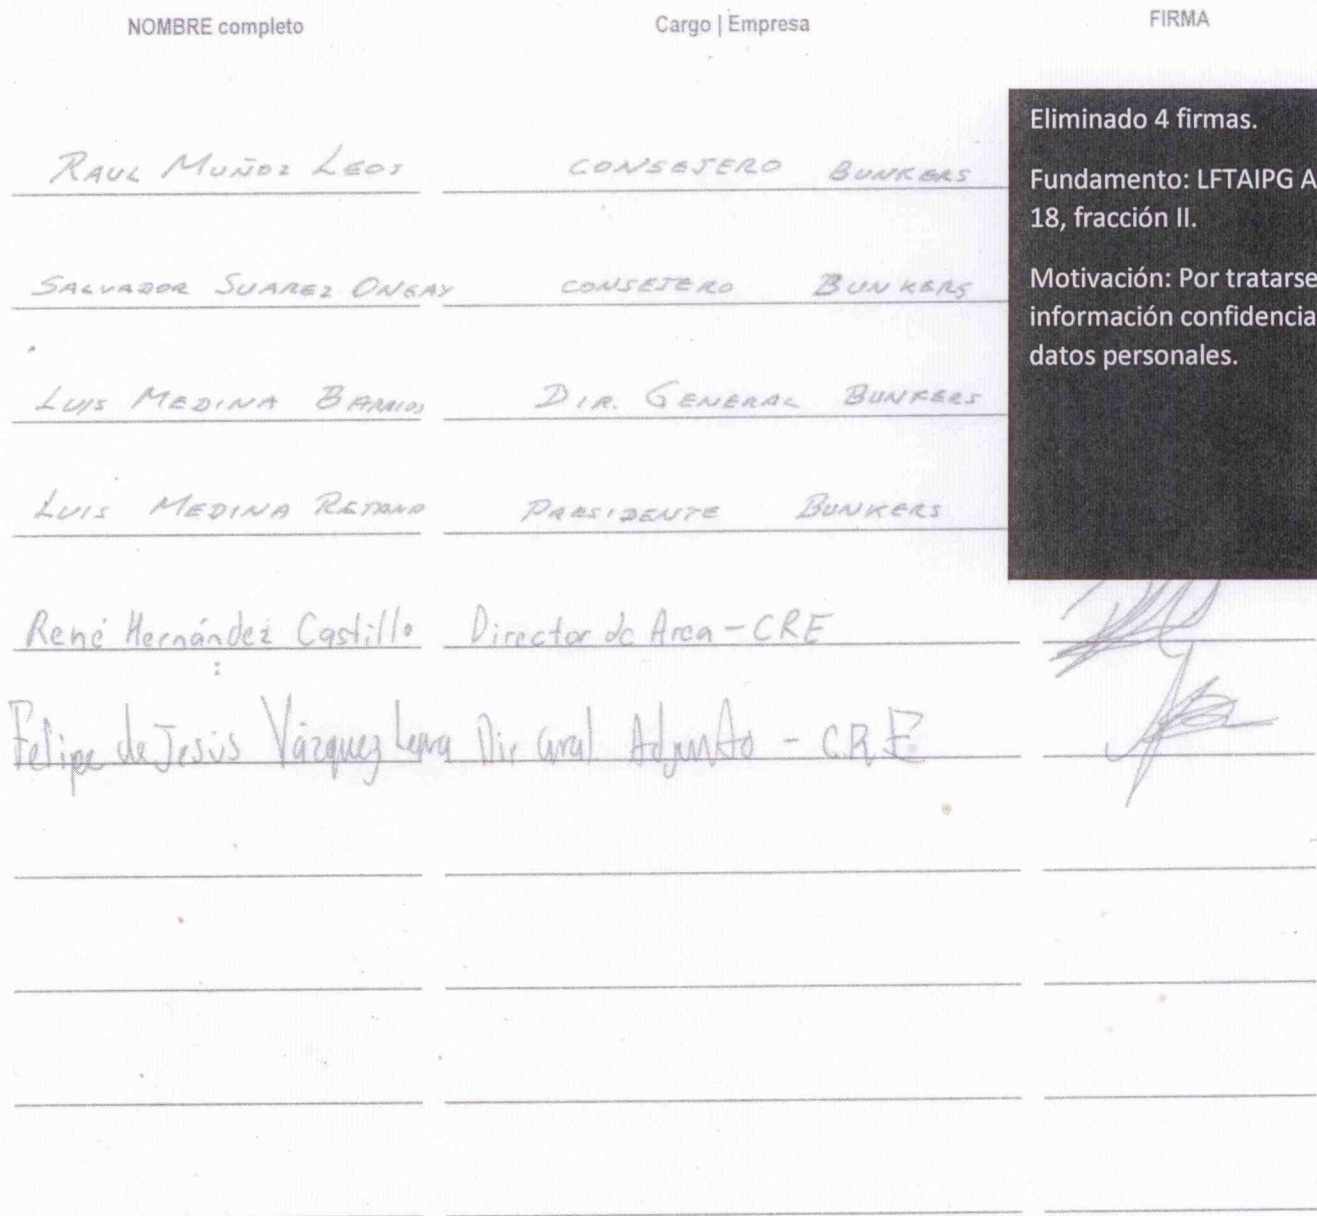 NOMBRE completo Cargo | Empresa FIRMA
Eliminado 4 firmas.
Fundamento: LFTAIPG A
18, fracción II.
Motivación: Por tratarse
información confidencia
datos personales.
RAUL MUÑOZ LEOS CONSEJERO BUNKERS
SALVADOR SUAREZ ONGAY CONSEJERO BUNKERS
LUIS MEDINA BARRIOS DIR. GENERAL BUNKERS
LUIS MEDINA PRESIDENTE BUNKERS
René Hernández Castillo Director de Area - CRE
Felipe de Jesús Vázquez Dir Gral Adjunto - CRE